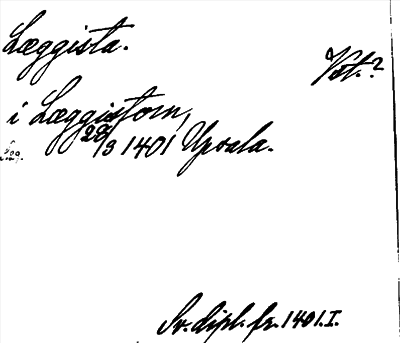 Læggista.
Vst.?
i Læggistom,
28/3 1401 Upsala.
Sv. dipl. fr. 1401. I.